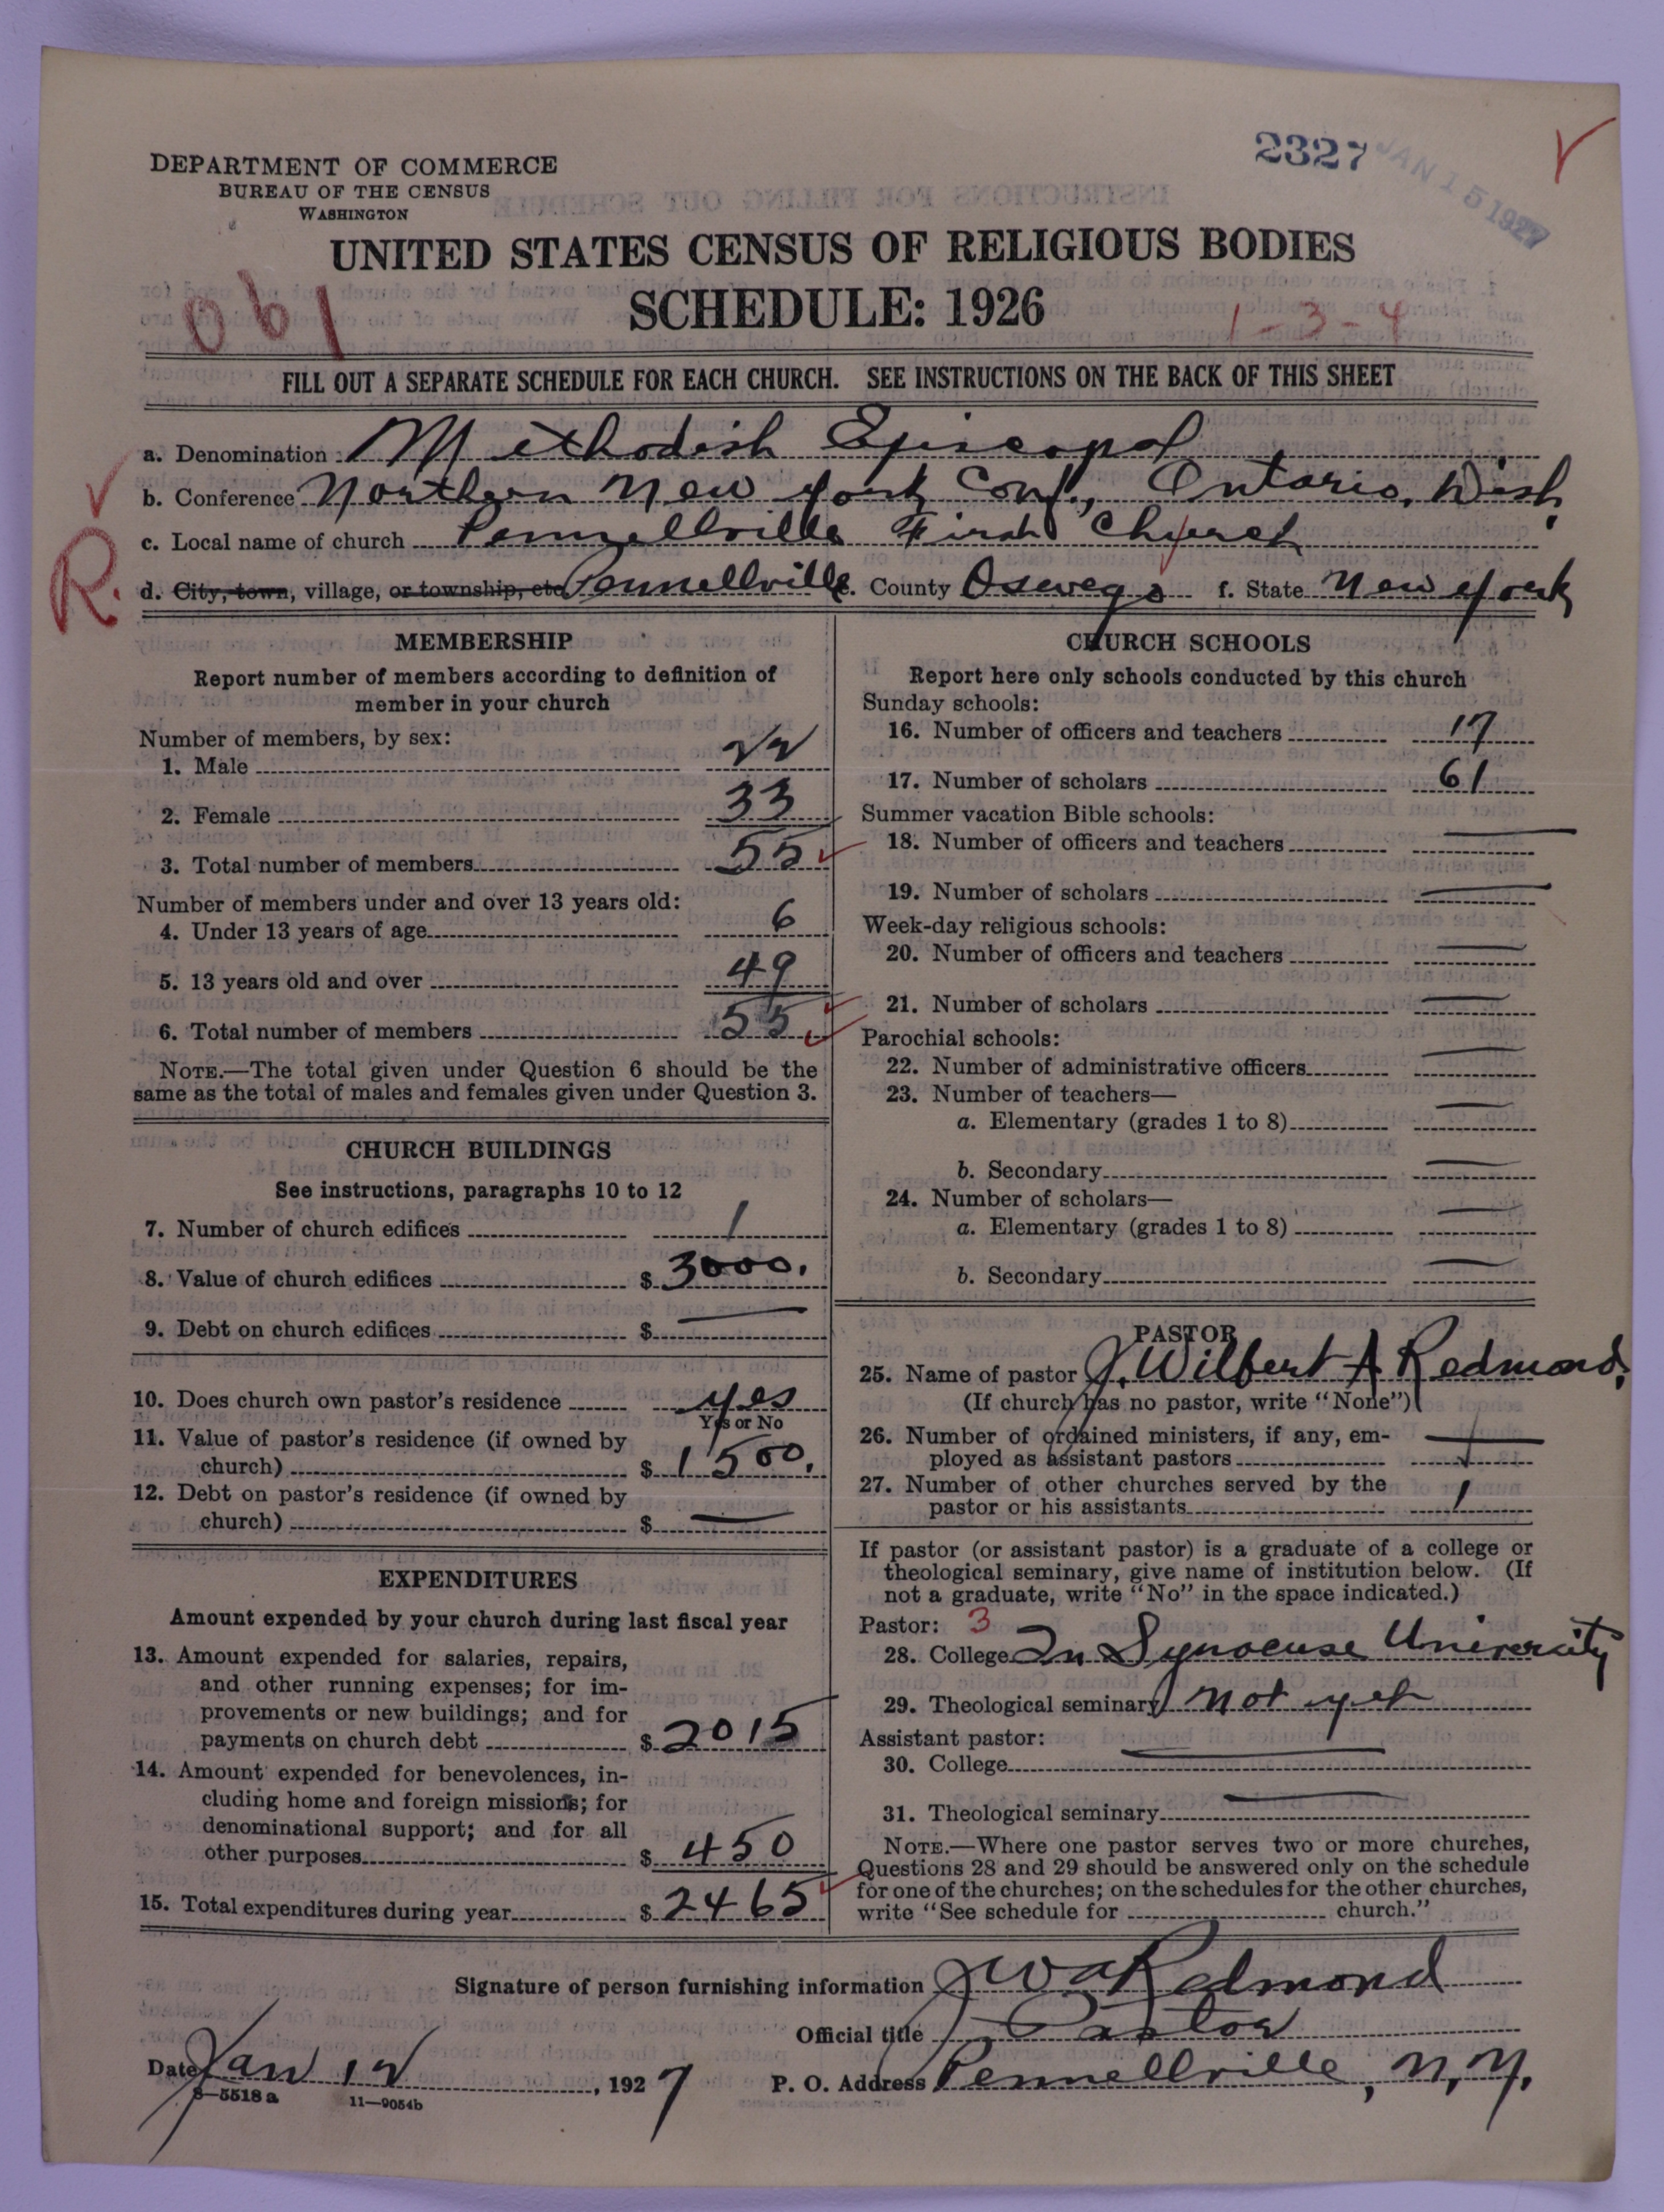 2327
JAN 15 1927
DEPARTMENT OF COMMERCE
BUREAU OF THE CENSUS
WASHINGTON
UNITED STATES CENSUS OF RELIGIOUS BODIES
061
SCHEDULE: 1926
1-3-4
FILL OUT A SEPARATE SCHEDULE FOR EACH CHURCH. SEE INSTRUCTIONS ON THE BACK OF THIS SHEET
a. Denomination Methodish Episcopal
b. Conference Northern New York Conf., Ontario, Dish
R.
c. Local name of church Pennellville First Church
d. City, town, village, or township, etc Pennellville e. County Oswego f. State New York
MEMBERSHIP
Report number of members according to definition of
member in your church
Number of members, by sex:
1. Male 22
2. Female 33
3. Total number of members 55
Number of members under and over 13 years old:
4. Under 13 years of age 6
5. 13 years old and over 49
6. Total number of members 55
NOTE.—The total given under Question 6 should be the
same as the total of males and females given under Question 3.
CHURCH BUILDINGS
See instructions, paragraphs 10 to 12
7. Number of church edifices 1
8. Value of church edifices $ 3000.
9. Debt on church edifices $ —
10. Does church own pastor's residence yes
Yes or No
11. Value of pastor's residence (if owned by
church) $ 1500.
12. Debt on pastor's residence (if owned by
church) $ —
EXPENDITURES
Amount expended by your church during last fiscal year
13. Amount expended for salaries, repairs,
and other running expenses; for im-
provements or new buildings; and for
payments on church debt $ 2015
14. Amount expended for benevolences, in-
cluding home and foreign missions; for
denominational support; and for all
other purposes $ 450
15. Total expenditures during year $ 2465
CHURCH SCHOOLS
Report here only schools conducted by this church
Sunday schools:
16. Number of officers and teachers 17
17. Number of scholars 61
Summer vacation Bible schools:
18. Number of officers and teachers —
19. Number of scholars —
Week-day religious schools:
20. Number of officers and teachers —
21. Number of scholars —
Parochial schools:
22. Number of administrative officers —
23. Number of teachers—
a. Elementary (grades 1 to 8) —
b. Secondary —
24. Number of scholars—
a. Elementary (grades 1 to 8) —
b. Secondary —
PASTOR
25. Name of pastor J. Wilbert A Redmond.
(If church has no pastor, write "None")
26. Number of ordained ministers, if any, em-
ployed as assistant pastors —
27. Number of other churches served by the
pastor or his assistants 1
If pastor (or assistant pastor) is a graduate of a college or
theological seminary, give name of institution below. (If
not a graduate, write "No" in the space indicated.)
Pastor: 3
28. College In Syracuse University
29. Theological seminary Not yet
Assistant pastor:
30. College —
31. Theological seminary —
NOTE.—Where one pastor serves two or more churches,
Questions 28 and 29 should be answered only on the schedule
for one of the churches; on the schedules for the other churches,
write "See schedule for church."
Signature of person furnishing information J W A Redmond
Official title Pastor
Date Jan 12, 1927 P. O. Address Pennellville, N, Y,
8—5518a 11—9054b